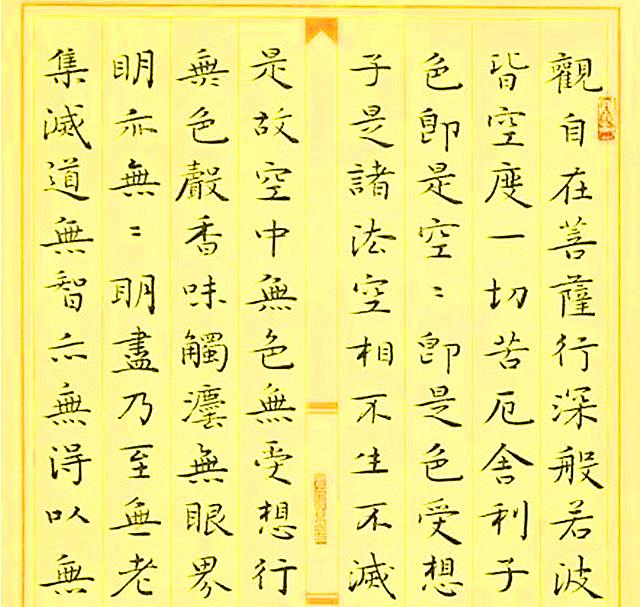 觀自在菩薩行深般若波
皆空度一切苦厄舍利子
色即是空〻即是色受想
子是諸法空相不生不滅
是故空中無色無受想行
無色聲香味觸灋無眼界
明亦無〻明盡乃至無老
集滅道無智亦無得以無